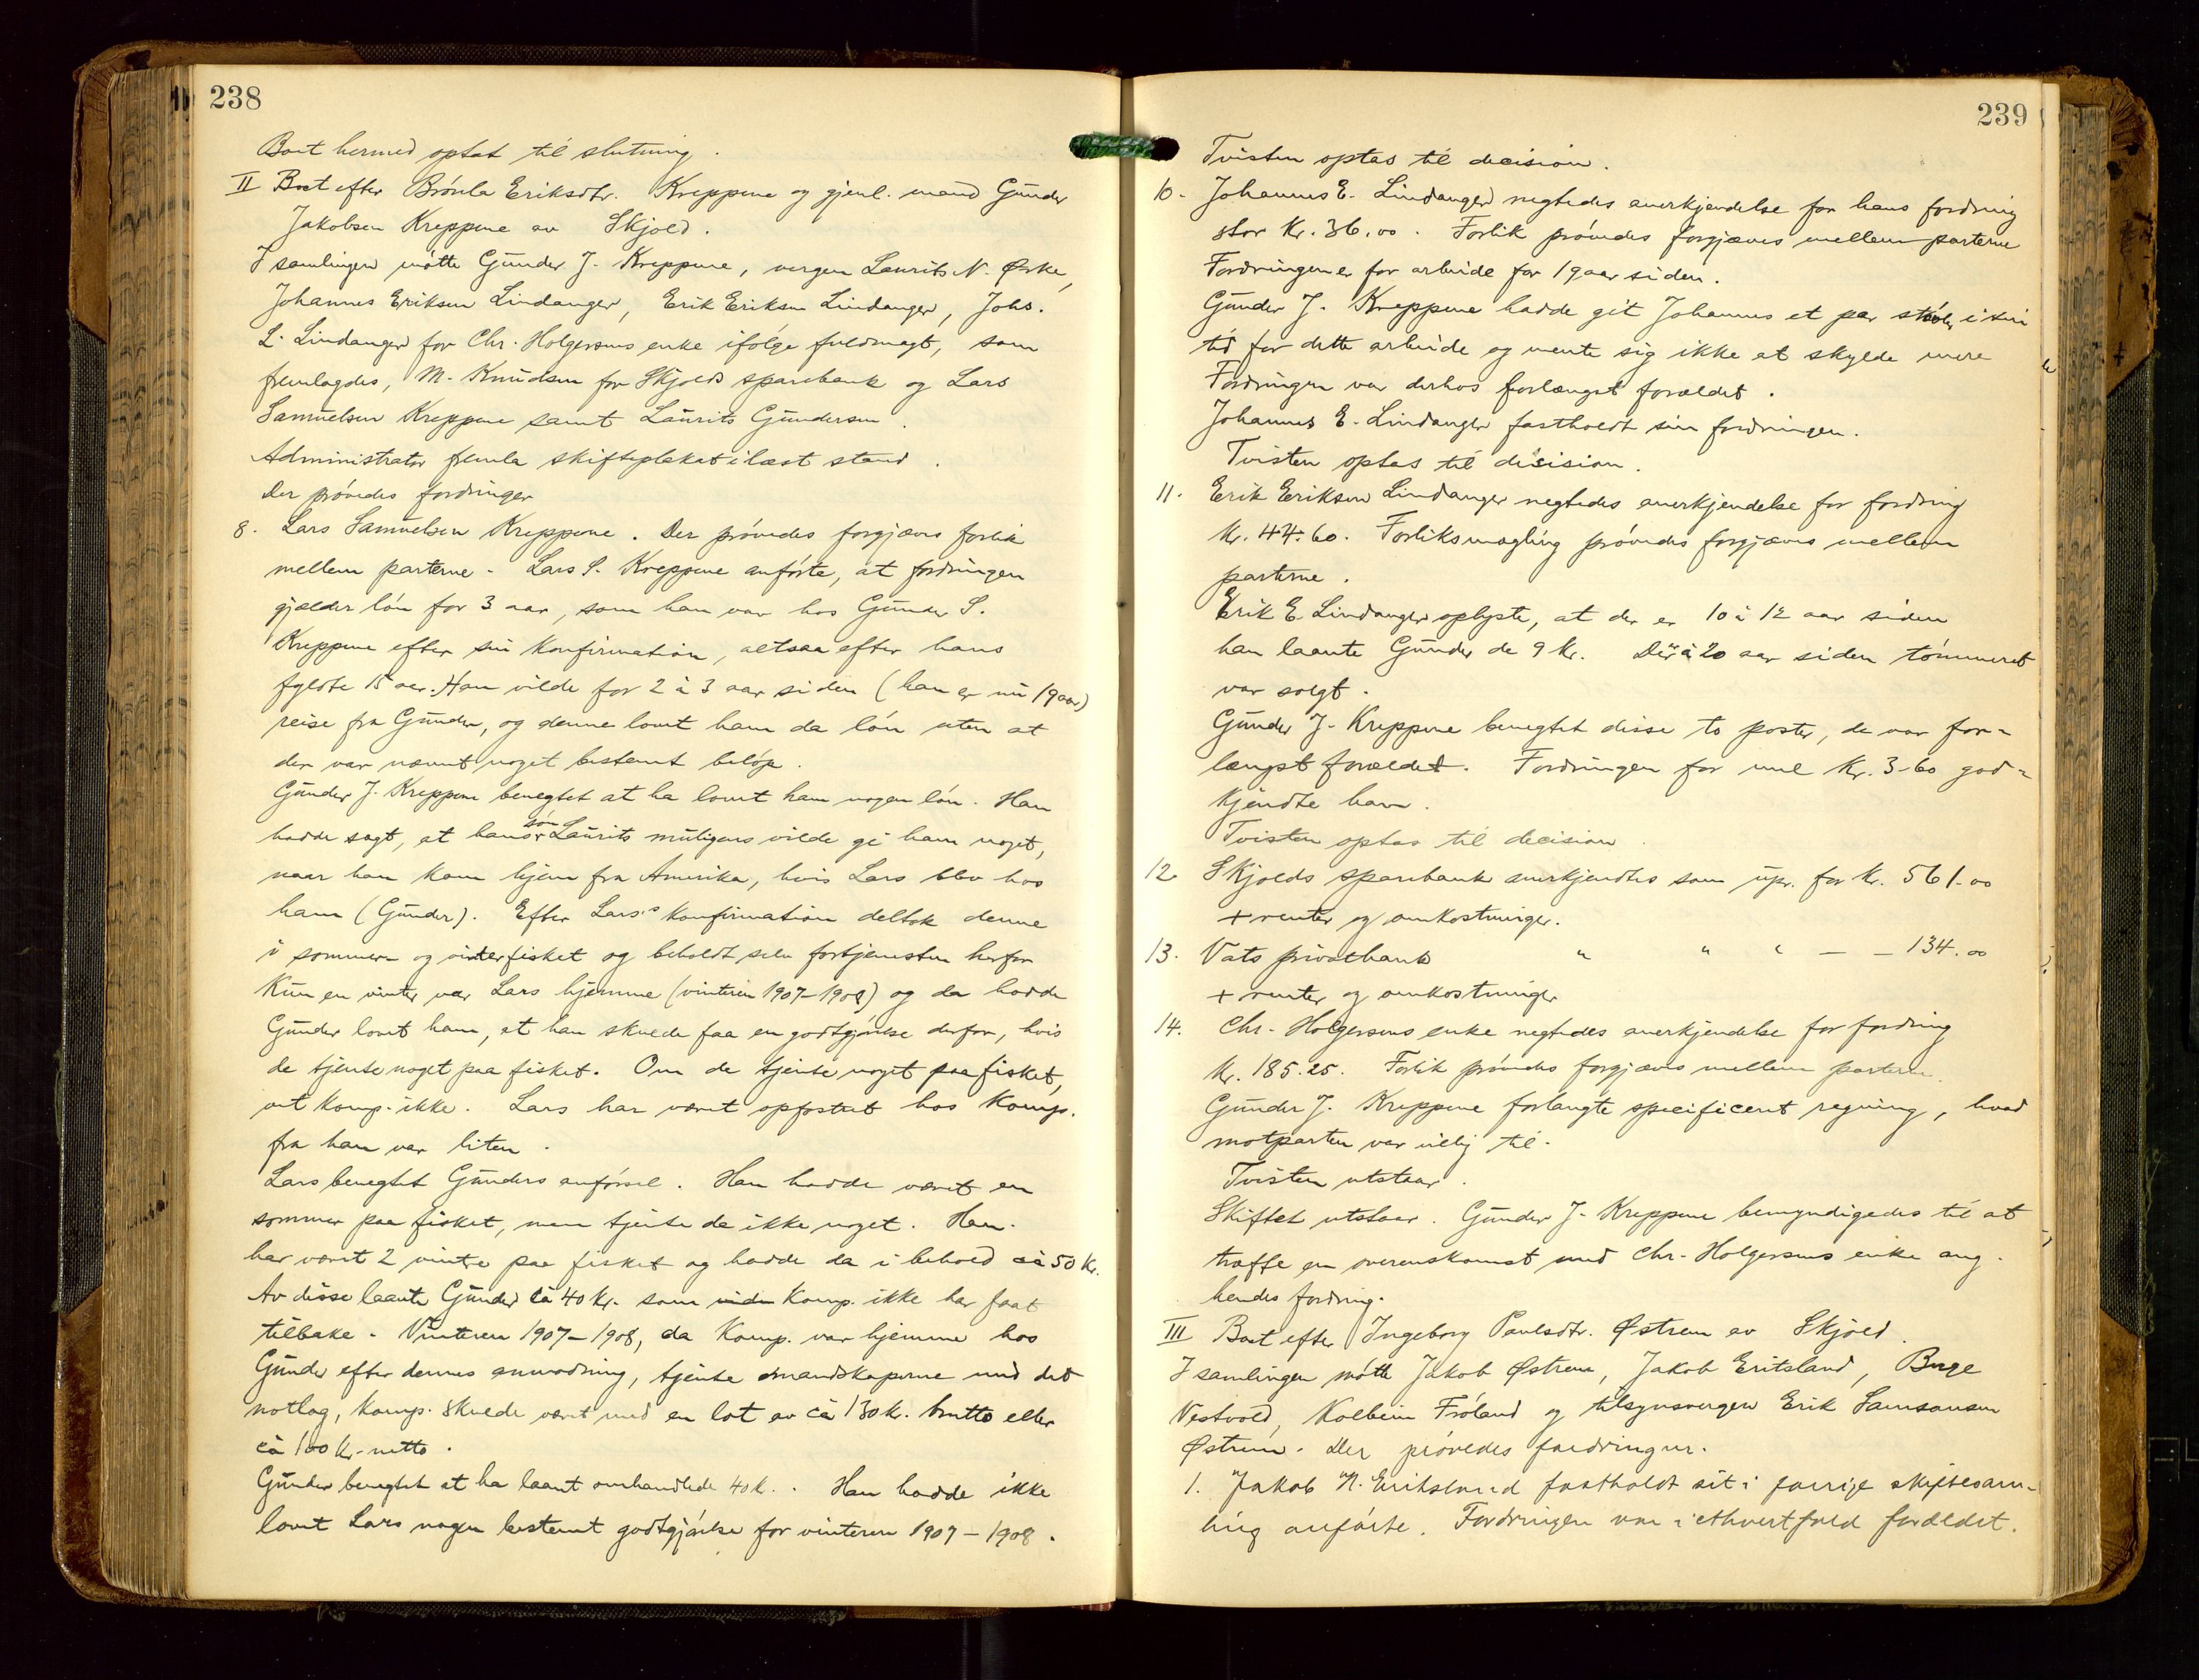 238
Boet hermed optat til slutning.
II Boet efter Brónla Eriksdtr. Kreppene og gjenl. mand Gunder
Jakobsen Kreppene av Skjold.
I samlingen mótte Gunder J. Kreppene, vergen Laurits N. Ørke,
Johannes Eriksen Lindanger, Erik Eriksen Lindanger, Johs.
L. Lindanger for Chr. Holgersens enke ifólge fuldmagt, som
fremlagdes, M. Knudsen for Skjolds sparebank og Lars
Samuelsen Kreppene samt Laurits Gundersen.
Administrator fremla skifteplakat i læst stand.
Der próvedes fordringer
8. Lars Samuelsen Kreppene. Der próvedes forgjæves forlik
mellem parterne. Lars S. Kreppene anfórte, at fordringen
gjælder lón for 3 aar, som han var hos Gunder S.
Kreppene efter sin konfirmation, altsaa efter hans
fyldte 15 aar. Han vilde for 2 à 3 aar siden (han er nu 19 aar)
reise fra Gunder, og denne lovet ham da lón uten at
der var nævnt noget bestemt belóp.
Gunder J. Kreppene benegtet at ha lovet ham nogen lón. Han
hadde sagt, at hans són Laurits muligens vilde gi ham noget,
naar han kom hjem fra Amerika, hvis Lars blev hos
ham (Gunder). Efter Lars's konfirmation deltok denne
i sommer- og vinterfisket og beholdt selv fortjenesten herfor
Kun en vinter var Lars hjemme (vinteren 1907-1908) og da hadde
Gunder lovet ham, at han skulde faa en godtgjórelse derfor, hvis
de tjente noget paa fisket. Om de tjente noget paa fisket,
vet komp. ikke. Lars har været opfostret hos komp.
fra han var liten.
Lars benegtet Gunders anfórsel. Han hadde været en
sommer paa fisket, men tjente da ikke noget. Han
har været 2 vintre paa fisket og hadde da i behold ca 50 kr.
Av disse laante Gunder ca 40 kr. som komp. ikke har faat
tilbake. Vinteren 1907-1908, da komp. var hjemme hos
Gunder efter dennes anmodning, tjente mandskaperne med det
notlag, komp. skulde været med en lot av ca 130 kr. brutto eller
ca 100 kr. netto.
Gunder benegtet at ha laant omhandlede 40 k. Han hadde ikke
lovet Lars nogen bestemt godtgjórelse for vinteren 1907-1908.
239
Tvisten optas til decision.
10. Johannes E. Lindanger negtedes anerkjendelse for hans fordring
stor kr. 36.00. Forlik próvedes forgjæves mellem parterne
Fordringen er for arbeide for 19 aar siden.
Gunder J. Kreppene hadde git Johannes et par stóvler i sin
tid for dette arbeide og mente sig ikke at skylde mere
Fordringen var derhos forlængst forældet.
Johannes E. Lindanger fastholdt sin fordringen.
Tvisten optas til decision.
11. Erik Eriksen Lindanger negtedes anerkjendelse for fordring
kr. 44.60. Forliksmægling próvedes forgjæves mellem
parterne.
Erik E. Lindanger oplyste, at der er 10 à 12 aar siden
han laante Gunder de 9 kr. Der er 20 aar siden tómmeret
var solgt.
Gunder J. Kreppene benegtet disse to poster, de var for-
længst forældet. Fordringen for mel kr. 3.60 god-
kjendte han.
Tvisten optas til decision.
12. Skjolds sparebank anerkjendtes som upr. for kr. 561.00
+ renter og omkostninger.
13. Vats privatbank " " " — — 134.00
+ renter og omkostninger
14. Chr. Holgersens enke negtedes anerkjendelse for fordring
kr. 185.25. Forlik próvedes forgjæves mellem parterne.
Gunder J. Kreppene forlangte specificeret regning, hvad
motparten var villig til.
Tvisten utstaar.
Skiftet utstaar. Gunder J. Kreppene bemyndigedes til at
træffe en overenskomst med Chr. Holgersens enke ang.
hendes fordring.
III Boet efter Ingeborg Paulsdtr. Østrem av Skjold.
I samlingen mótte Jakob Østrem, Jakob Eritsland, Børge
Vestvold, Kolbein Fróland og tilsynsvergen Erik Samsonsen
Østrem. Der próvedes fordringer.
1. Jakob N. Eritsland fastholdt sit i forrige skiftesam-
ling anfórte. Fordringen var i ethvertfald forældet.